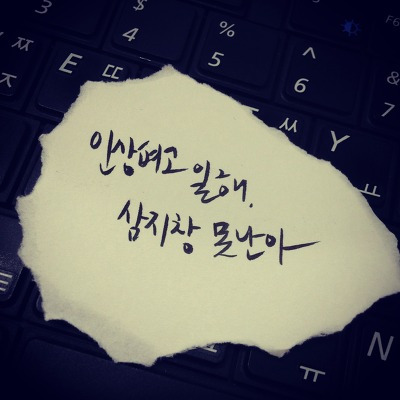 3 $ 4 % 5 ^ 6 & 7 F6
ㅉ E ㄸ ㅆ Y ㅛ
인상펴고 일해.
삼지창 못난아
N
ㅠ